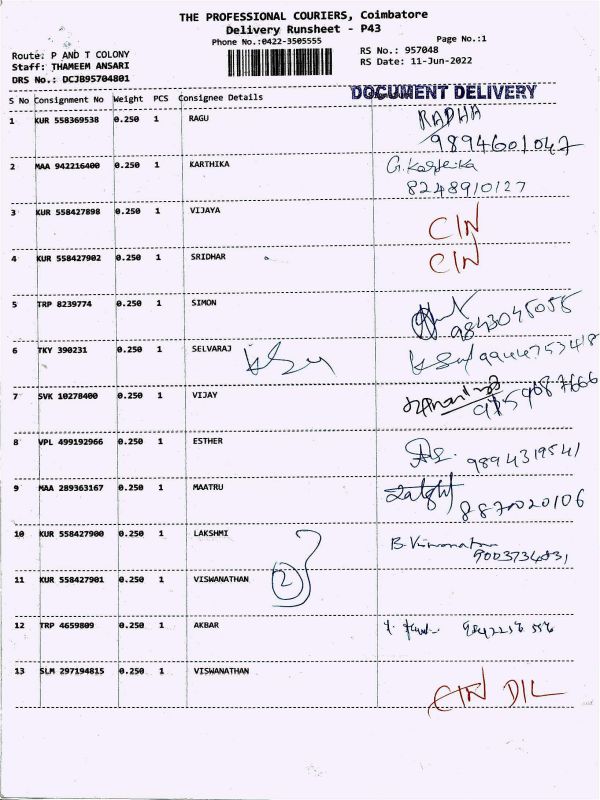 THE PROFESSIONAL COURIERS, Coimbatore
Delivery Runsheet - P43
Phone No.:0422-3505555
Page No.:1
Route: P AND T COLONY
Staff: THAMEEM ANSARI
DRS No.: DCJB95704801
RS No.: 957048
RS Date: 11-Jun-2022
S No Consignment No Weight PCS Consignee Details
DOCUMENT DELIVERY
1 KUR 558369538 0.250 1 RAGU RADHA
9894601047
2 MAA 942216400 0.250 1 KARTHIKA G. Karthika
8248910127
3 KUR 558427898 0.250 1 VIJAYA CIN
4 KUR 558427902 0.250 1 SRIDHAR CIN
5 TRP 8239774 0.250 1 SIMON 9843045055
6 TKY 390231 0.250 1 SELVARAJ
7 SVK 10278400 0.250 1 VIJAY
8 VPL 499192966 0.250 1 ESTHER 9894319541
9 MAA 289363167 0.250 1 MAATRU 8870020106
10 KUR 558427900 0.250 1 LAKSHMI
11 KUR 558427901 0.250 1 VISWANATHAN 2
12 TRP 4659809 0.250 1 AKBAR
13 SLM 297194815 0.250 1 VISWANATHAN CIN DIL